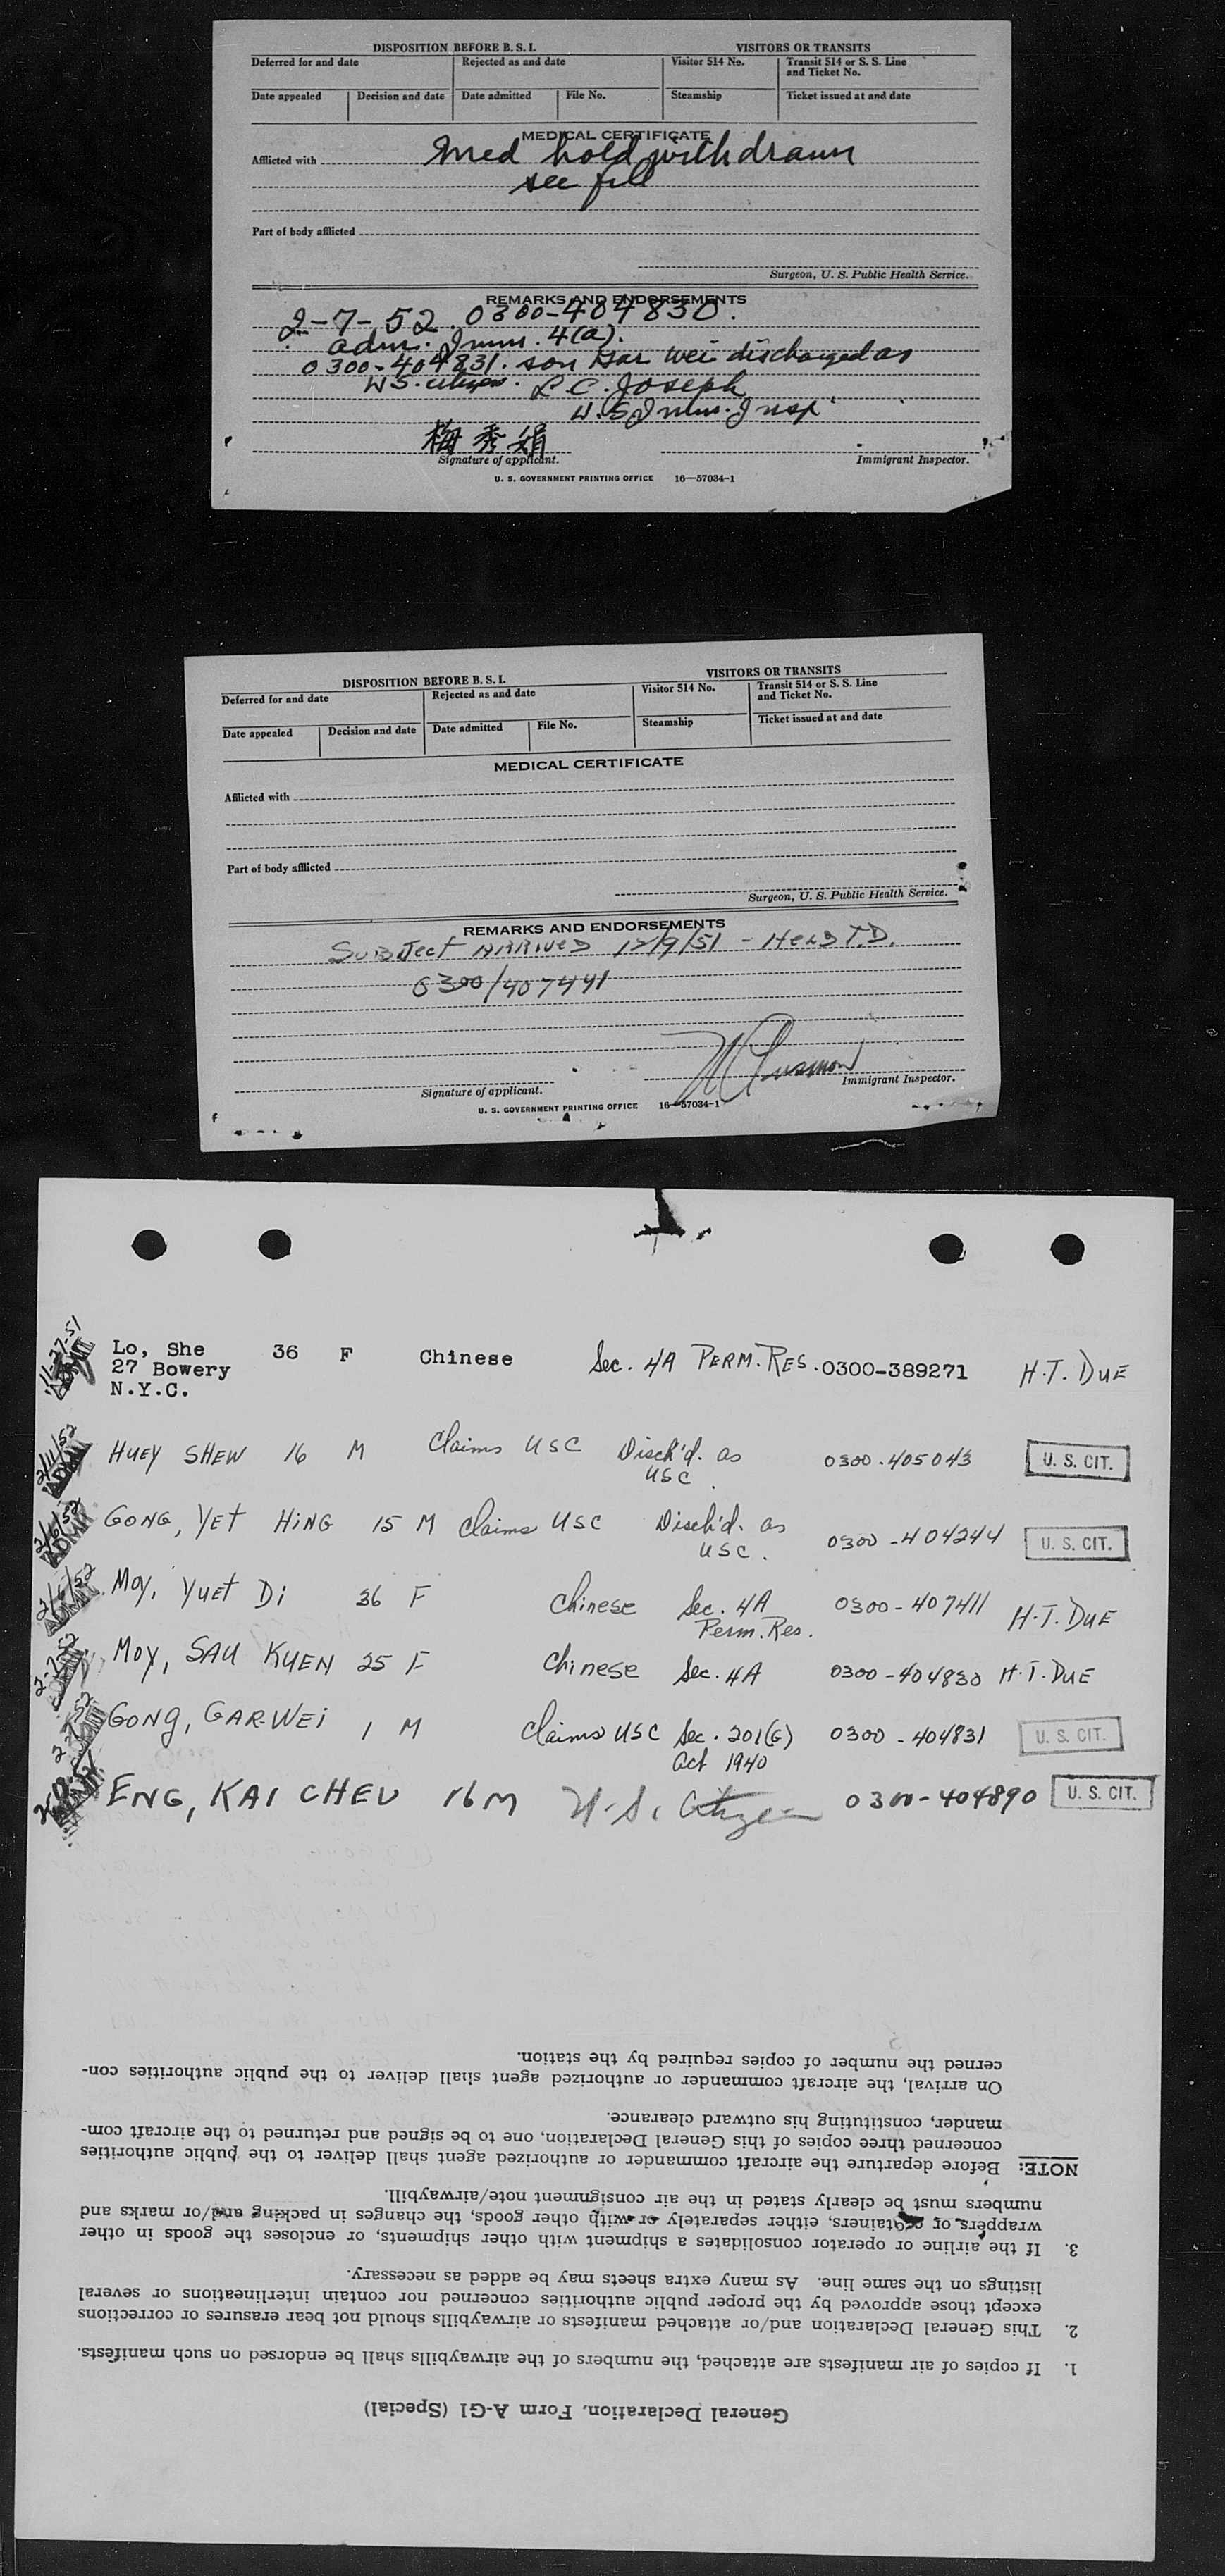 DISPOSITION BEFORE B. S. I. VISITORS OR TRANSITS
Deferred for and date Rejected as and date Visitor 514 No. Transit 514 or S. S. Line
and Ticket No.
Date appealed Decision and date Date admitted File No. Steamship Ticket issued at and date
MEDICAL CERTIFICATE
Afflicted with Med hold withdrawn
see file
Part of body afflicted
Surgeon, U. S. Public Health Service.
REMARKS AND ENDORSEMENTS
2-7-52. 0300-404830.
adm. Imm. 4(a).
0300-404831. son Gar Wei discharged as
US. citizen. L. C. Joseph
U.S. Imm. Insp.
梅秀娟
Signature of applicant. Immigrant Inspector.
U. S. GOVERNMENT PRINTING OFFICE 16—57034-1
DISPOSITION BEFORE B. S. I. VISITORS OR TRANSITS
Deferred for and date Rejected as and date Visitor 514 No. Transit 514 or S. S. Line
and Ticket No.
Date appealed Decision and date Date admitted File No. Steamship Ticket issued at and date
MEDICAL CERTIFICATE
Afflicted with
Part of body afflicted
Surgeon, U. S. Public Health Service.
REMARKS AND ENDORSEMENTS
SUBJECT ARRIVED 12/9/51 - HELD T.D.
0300/407441
Signature of applicant. Immigrant Inspector.
U. S. GOVERNMENT PRINTING OFFICE 16—57034-1
11-27-51 ADMIT Lo, She 36 F Chinese Sec. 4A PERM. RES. 0300-389271 H.T. DUE
27 Bowery
N.Y.C.
2/11/52 ADMIT HUEY SHEW 16 M Claims USC Disch'd. as 0300-405043 U. S. CIT.
USC.
2/6/52 ADMIT GONG, YET HING 15 M Claims USC Disch'd. as 0300-404244 U. S. CIT.
USC.
2/6/52 ADMIT MOY, YUET DI 36 F Chinese Sec. 4A 0300-407411 H.T. DUE
Perm. Res.
2-7-52 MOY, SAU KUEN 25 F Chinese Sec. 4A 0300-404830 H.T. DUE
GONG, GAR-WEI 1 M Claims USC Sec. 201(G) 0300-404831 U. S. CIT.
Act 1940
ENG, KAI CHEU 16 M U.S. Citizen 0300-404890 U. S. CIT.
General Declaration, Form A-G1 (Special)
1. If copies of air manifests are attached, the numbers of the airwaybills shall be endorsed on such manifests.
2. This General Declaration and/or attached manifests or airwaybills should not bear erasures or corrections
except those approved by the proper public authorities concerned nor contain interlineations or several
listings on the same line. As many extra sheets may be added as necessary.
3. If the airline or operator consolidates a shipment with other shipments, or encloses the goods in other
wrappers or containers, either separately or with other goods, the changes in packing and/or marks and
numbers must be clearly stated in the air consignment note/airwaybill.
NOTE: Before departure the aircraft commander or authorized agent shall deliver to the public authorities
concerned three copies of this General Declaration, one to be signed and returned to the aircraft com-
mander, constituting his outward clearance.
On arrival, the aircraft commander or authorized agent shall deliver to the public authorities con-
cerned the number of copies required by the station.